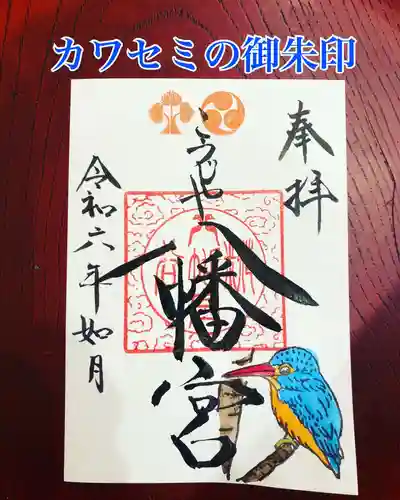 カワセミの御朱印
奉拝
こうじや
八幡宮
令和六年如月